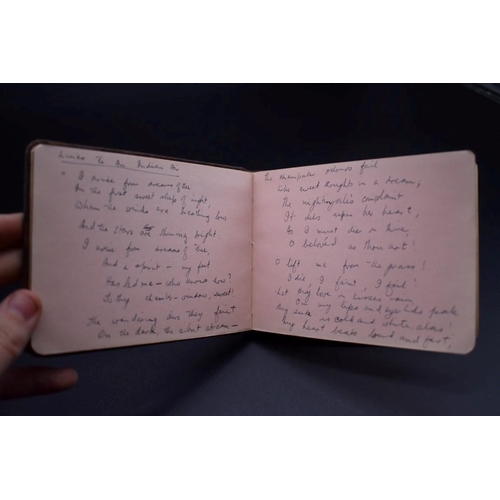 Lines To An Indian Air
" I arise from dreams of thee
In the first sweet sleep of night,
When the winds are breathing low
And the stars are shining bright.
I arise from dreams of thee,
And a spirit in my feet
Has led me - who knows how?
To thy chamber-window, sweet!
The wandering airs they faint
On the dark, the silent stream -
The champak odours fail
Like sweet thoughts in a dream;
The nightingale's complaint
It dies upon her heart,
As I must die on thine,
O beloved as thou art!
O lift me from the grass!
I die, I faint, I fail!
Let thy love in kisses rain
On my lips and eyelids pale
My cheek is cold and white, alas!
My heart beats loud and fast,